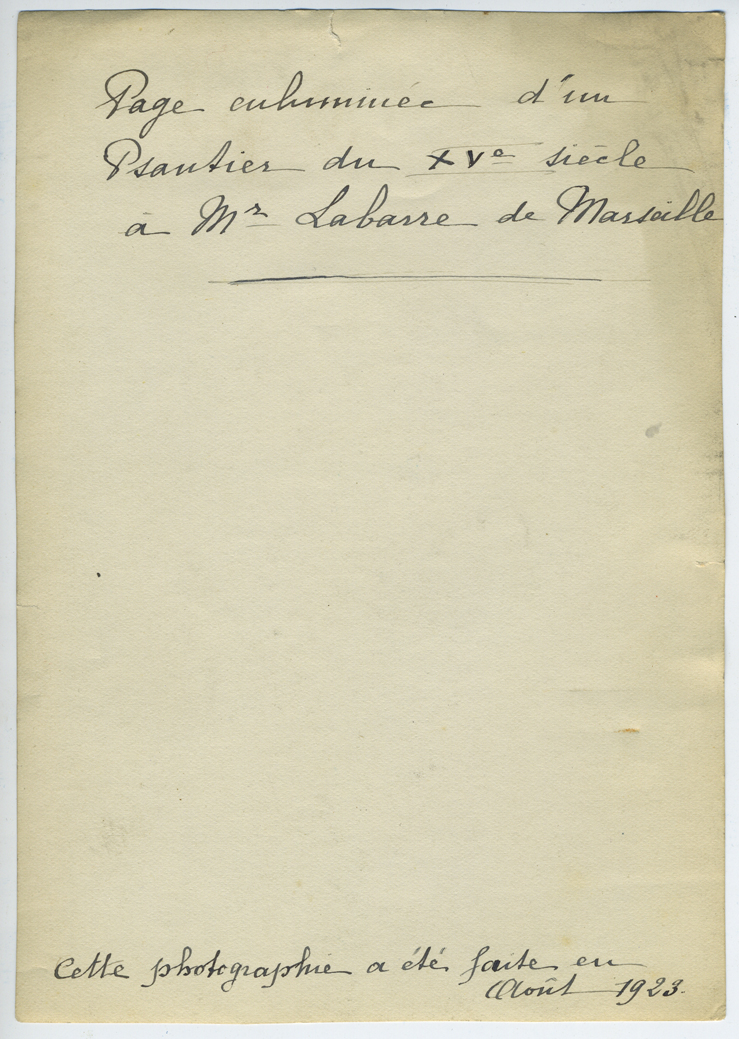 Page enluminée d'un
Psautier du XVe siècle
à Mr Labarre de Marseille
Cette photographie a été faite en
Août 1923.